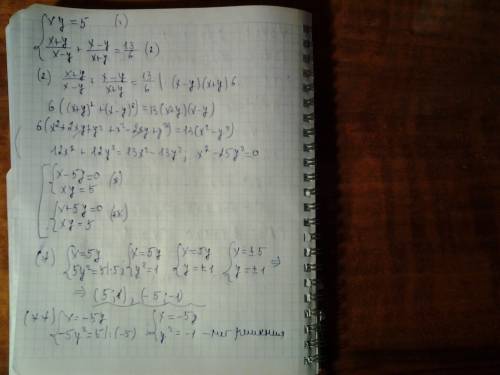 { xy = 5 (1)
{ (x+y)/(x-y) + (x-y)/(x+y) = 13/6 (2)
(2) (x+y)/(x-y) + (x-y)/(x+y) = 13/6 | (x-y)(x+y)6
6((x+y)² + (x-y)²) = 13(x+y)(x-y)
6(x²+2xy+y² + x²-2xy+y²) = 13(x²-y²)
12x² + 12y² = 13x² - 13y²; x² - 25y² = 0
[ { x-5y=0
{ xy=5 (*)
{ x+5y=0
{ xy=5 (**)
(*) { x=5y { x=5y { x=5y { x=±5
{ 5y²=5|:5 { y²=1 { y=±1 { y=±1 ⇒
⇒ (5;1), (-5;-1)
(**) { x=-5y { x=-5y
{ -5y²=5|:(-5) { y²=-1 - нет решения